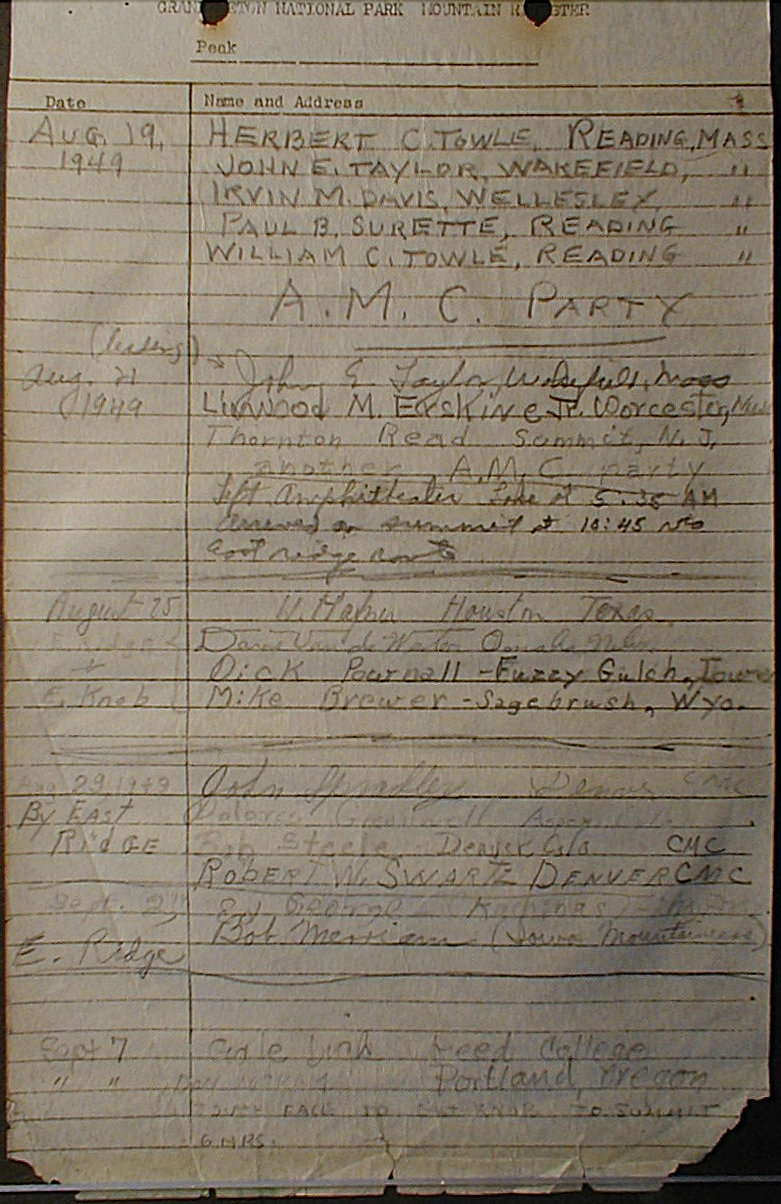 GRAND TETON NATIONAL PARK MOUNTAIN REGISTER
Peak
Date Name and Address
AUG. 19, HERBERT C. TOWLE, READING, MASS
1949 JOHN E. TAYLOR, WAKEFIELD, "
IRVIN M. DAVIS, WELLESLEY, "
PAUL B. SURETTE, READING "
WILLIAM C. TOWLE, READING "
A. M. C. PARTY
(leading)
Aug. 21 John E Taylor, Wakefield, Mass
1949 Linwood M. Erskine Jr. Worcester, Mass
Thornton Read Summit, N. J.
another A.M.C. party
left Amphitheater Lake at 5:35 AM
arrived on summit at 10:45 via
East ridge route
August 25 Houston Texas
E. Ridge Dave Van de Water Omaha Nebr.
+ Dick Pownall - Fuzzy Gulch, Iowa
E. Knob Mike Brewer - Sagebrush, Wyo.
Aug 29, 1949 John Spradley Denver CMC
By EAST
RIDGE Bob Steele Denver, Colo CMC
ROBERT W. SWARTZ DENVER CMC
Sept. 2, Ed George (Kachinas)
E. Ridge Bob Merriam (Iowa Mountaineers)
Sept 7 Reed College
" " Portland, Oregon
SOUTH FACE TO EAST KNOB TO SUMMIT
6 HRS.